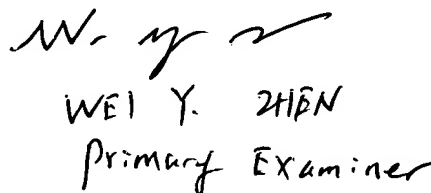 W. y z
WEI Y. ZHEN
Primary Examiner